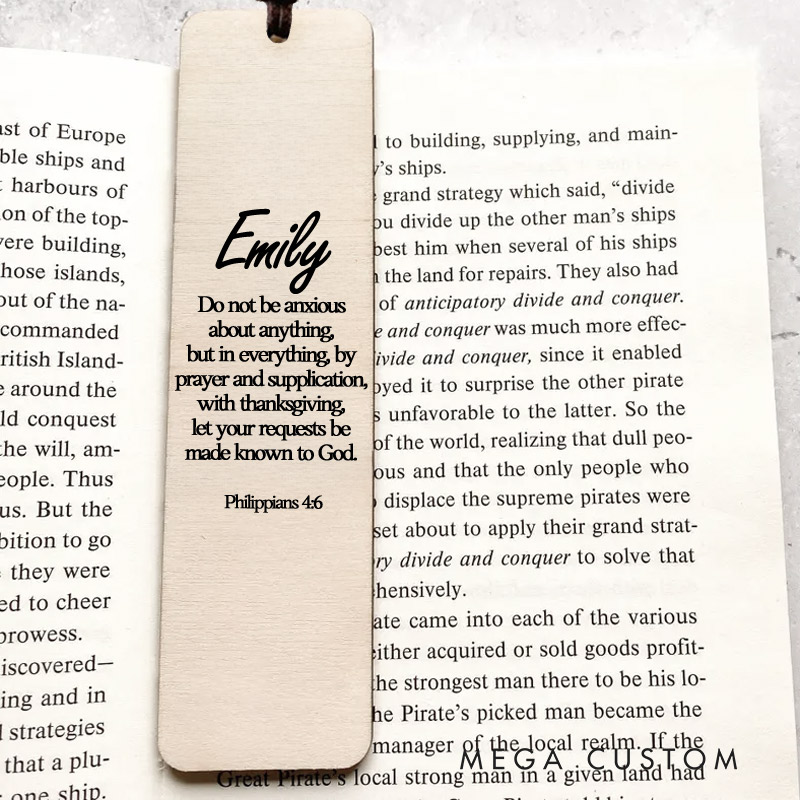 ast of Europe
ble ships and
harbours of
on of the top-
vere building,
hose islands,
out of the na-
commanded
ritish Island-
e around the
ld conquest
the will, am-
eople. Thus
us. But the
bition to go
they were
ed to cheer
prowess.
iscovered—
ing and in
l strategies
that a plu-
one ship.
Emily
Do not be anxious
about anything,
but in everything, by
prayer and supplication,
with thanksgiving,
let your requests be
made known to God.
Philippians 4:6
l to building, supplying, and main-
y's ships.
grand strategy which said, “divide
ou divide up the other man's ships
best him when several of his ships
n the land for repairs. They also had
of anticipatory divide and conquer.
e and conquer was much more effec-
ivide and conquer, since it enabled
oyed it to surprise the other pirate
s unfavorable to the latter. So the
of the world, realizing that dull peo-
ous and that the only people who
displace the supreme pirates were
set about to apply their grand strat-
ry divide and conquer to solve that
hensively.
ate came into each of the various
either acquired or sold goods profit-
the strongest man there to be his lo-
he Pirate's picked man became the
manager of the local realm. If the
Great Pirate's local strong man in a given land had
MEGA CUSTOM